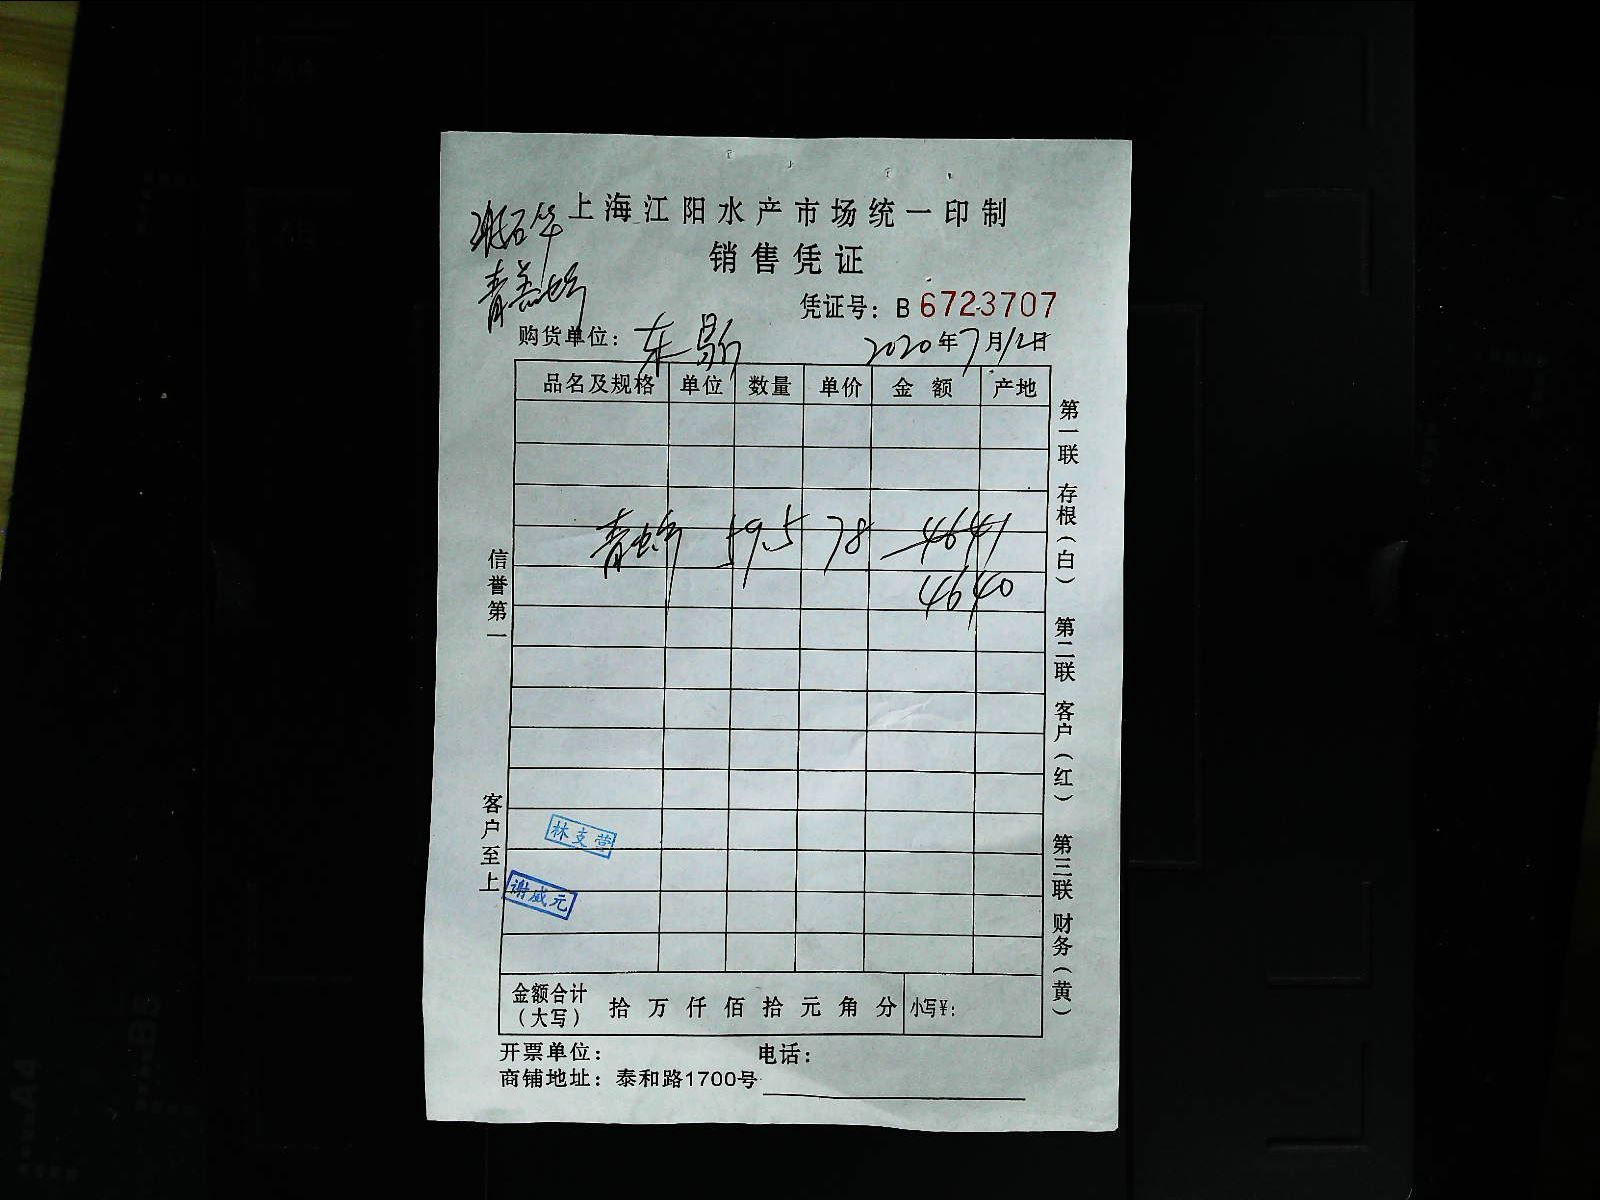 上海江阳水产市场统一印制
销售凭证
凭证号：B 6723707
购货单位：
2020年7月12日
品名及规格 单位 数量 单价 金额 产地
青虾 59.5 78 4641
4640
信誉第一
客户至上
第一联 存根（白） 第二联 客户（红） 第三联 财务（黄）
林支营
谢咸元
金额合计（大写） 拾 万 仟 佰 拾 元 角 分 小写¥：
开票单位： 电话：
商铺地址：泰和路1700号